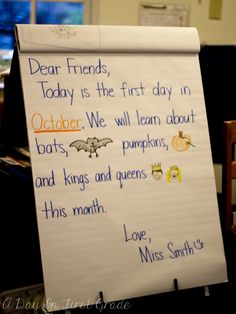 Dear Friends,
Today is the first day in
October. We will learn about
bats, pumpkins,
and kings and queens
this month.
Love,
Miss Smith
A Day In First Grade